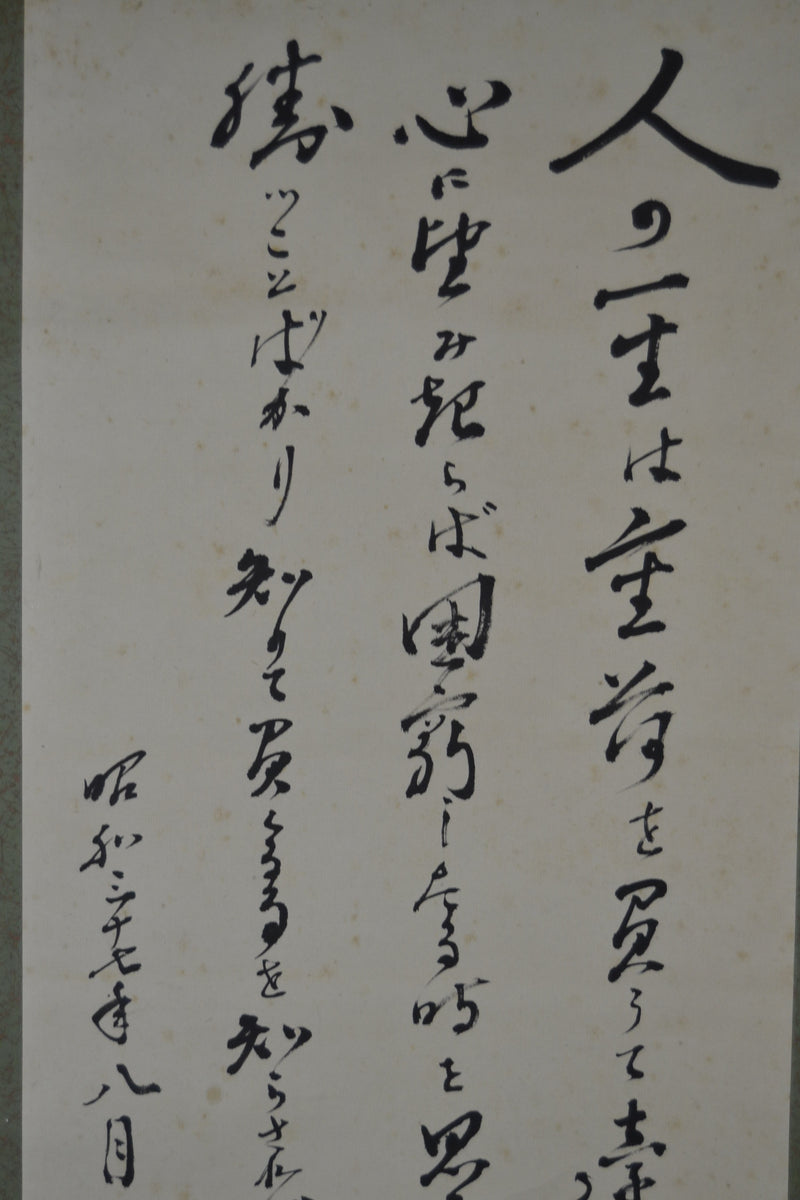 人の一生は重荷を負うて
心に望み起らば困窮したる時を思
勝つことばかり知りて負くる事を知らざれ
昭和三十七年八月